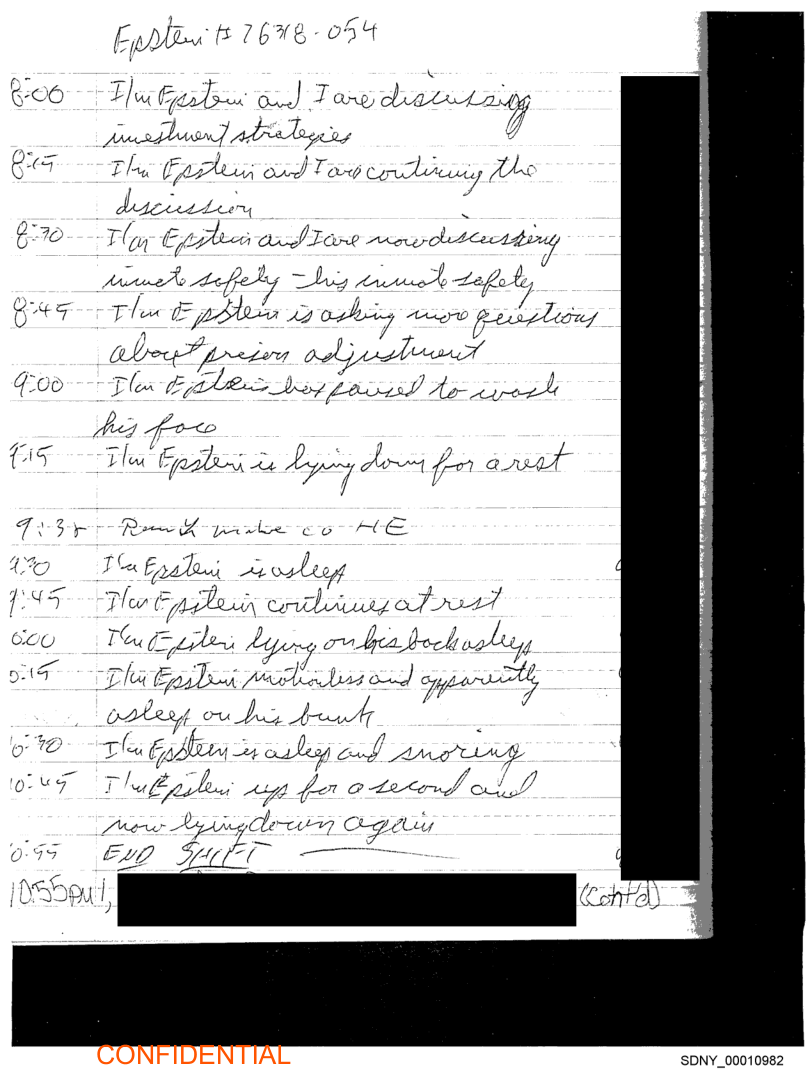 Epstein # 76318-054
8:00 I/m Epstein and I are discussing
investment strategies
8:15 I/m Epstein and I are continuing the
discussion
8:30 I/m Epstein and I are now discussing
inmate safety - his inmate safety
8:45 I/m Epstein is asking more questions
about prison adjustment
9:00 I/m Epstein has paused to wash
his face
9:15 I/m Epstein is lying down for a rest
9:30 I/m Epstein is asleep
9:45 I/m Epstein continues at rest
0:00 I/m Epstein lying on his back asleep
0:15 I/m Epstein motionless and apparently
asleep on his bunk
0:30 I/m Epstein is asleep and snoring
10:45 I/m Epstein up for a second and
now lying down again
0:55 END SHIFT
10:55pm, (Cont'd)
CONFIDENTIAL
SDNY_00010982